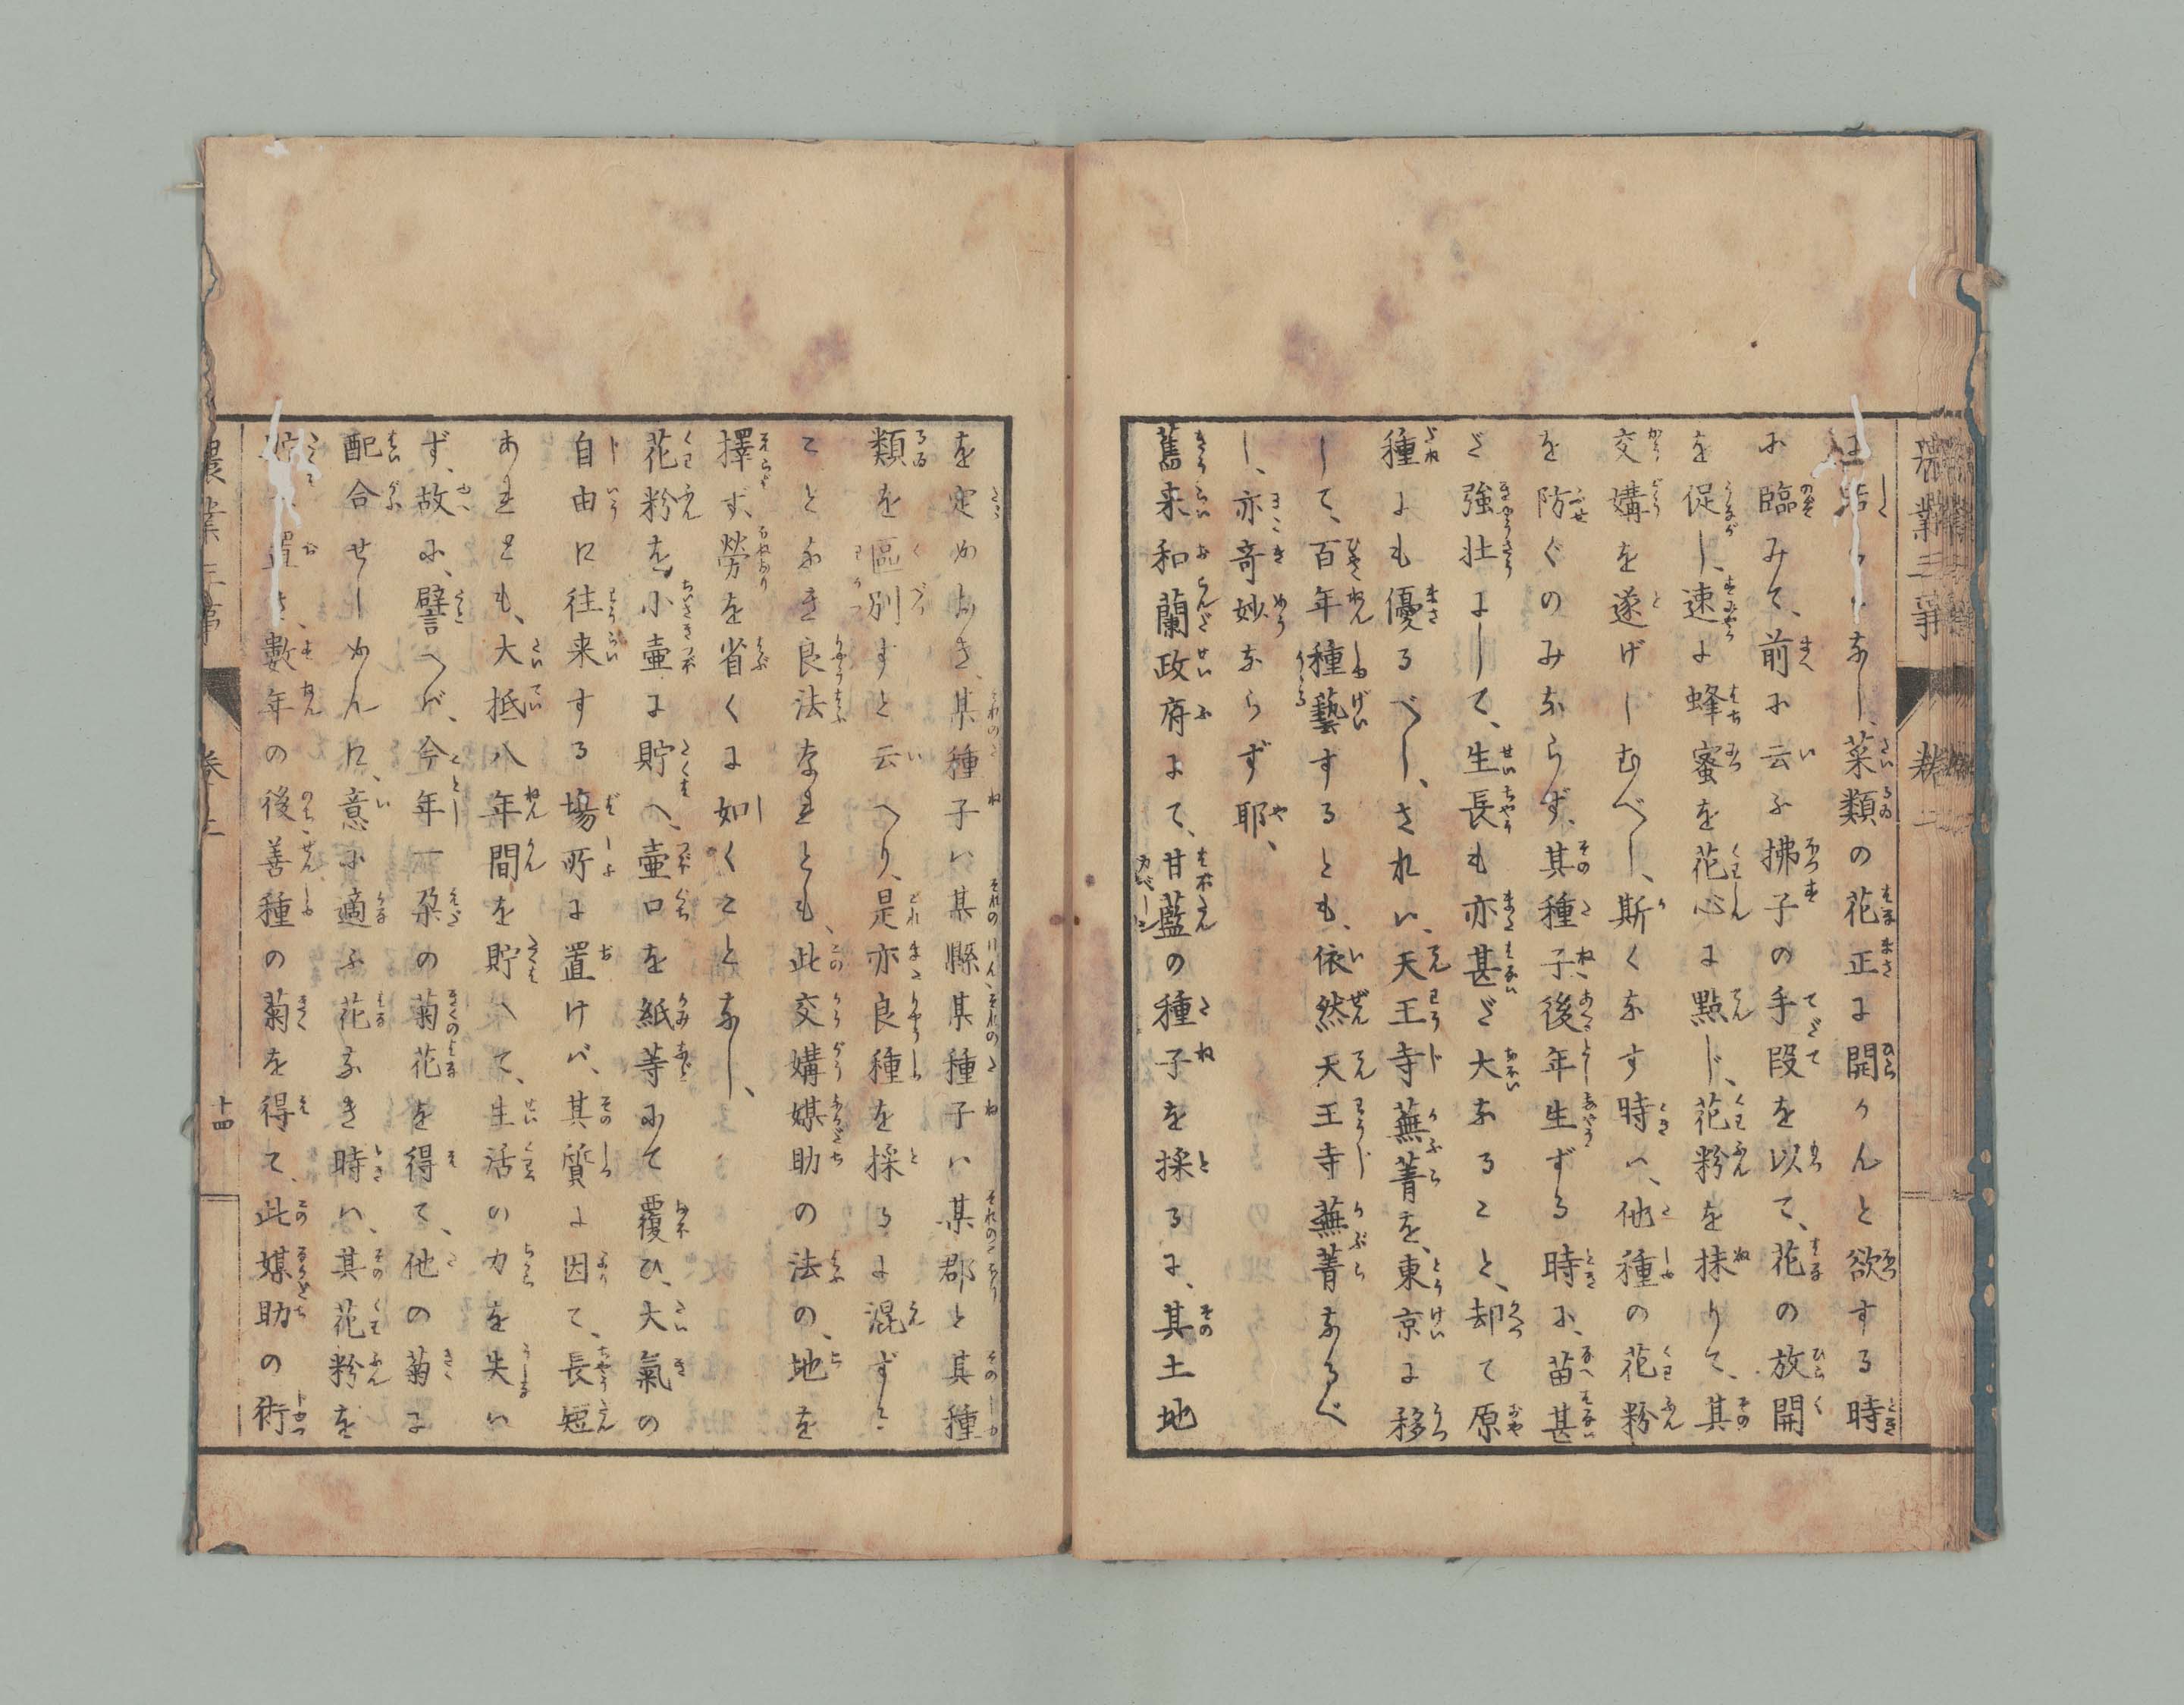 なし、菜類の花正に開かんと欲する時
に臨みて、前に云ふ拂子の手段を以て、花の放開
を促し、速に蜂蜜を花心に點じ、花粉を抹りて、其
交媾を遂げしむべし、斯くなす時ハ、他種の花粉
を防ぐのみならず、其種子後年生ずる時に、苗甚
だ強壮にして、生長も亦甚だ大なること、却て原
種にも優るべし、されハ、天王寺蕪菁を、東京に移
して、百年種藝するとも、依然天王寺蕪菁なるべ
し、亦奇妙ならず耶、
舊来和蘭政府にて、甘藍の種子を採るに、其土地
を定めおき、某種子ハ某縣某種子ハ某郡と其種
類を區別すと云へり、是亦良種を採るに混ずる
ことなき良法なれとも、此交媾媒助の法の、地を
擇ず、勞を省くに如くことなし、
花粉を小壷に貯へ、壷口を紙等にて覆ひ、大氣の
自由に往来する場所に置けバ、其質に因て、長短
あれども、大抵八年間を貯へて、生活の力を失ハ
ず、故に、譬へバ、今年一朶の菊花を得て、他の菊に
配合せしめんに、意に適ふ花なき時ハ、其花粉を
置き、數年の後善種の菊を得て、此媒助の術
農業三事
巻上
十四